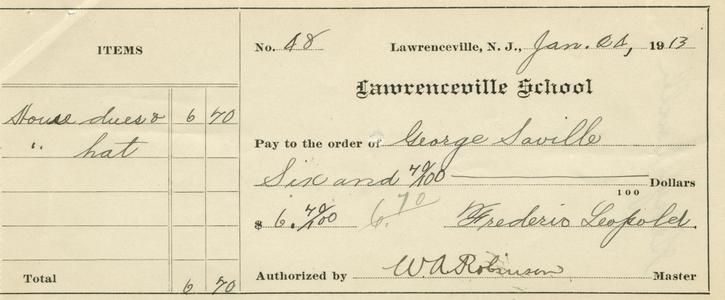 ITEMS
House dues & 6 70
" hat
Total 6 70
No. 48 Lawrenceville, N. J., Jan. 24, 1913
Lawrenceville School
Pay to the order of George Saville
Six and 70/100 Dollars
100
$ 6. 70/100 6. 70 Frederic Leopold.
Authorized by W. A. Robinson Master